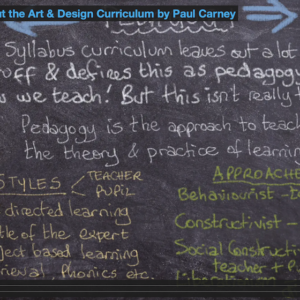 ut the Art & Design Curriculum by Paul Carney
Syllabus curriculum leaves out a lot
off & defines this as pedagogy
we teach! But this isn't really t
Pedagogy is the approach to teach
the theory & practice of learnin
STYLES < TEACHER
PUPIL
directed learning
tle of the expert
ject based learning
rieval, Phonics etc.
APPROACHE
Behaviourist -
Constructivist -
Social Constructi
teacher + P